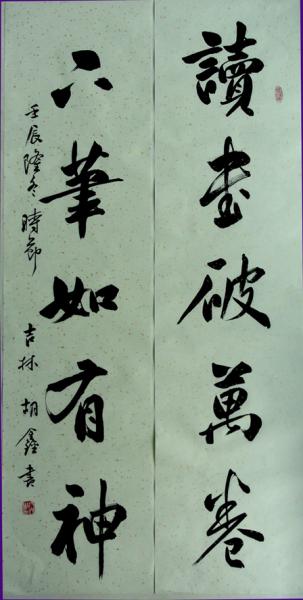 讀書破萬卷
下筆如有神
壬辰隆冬時節
吉林胡鑫書